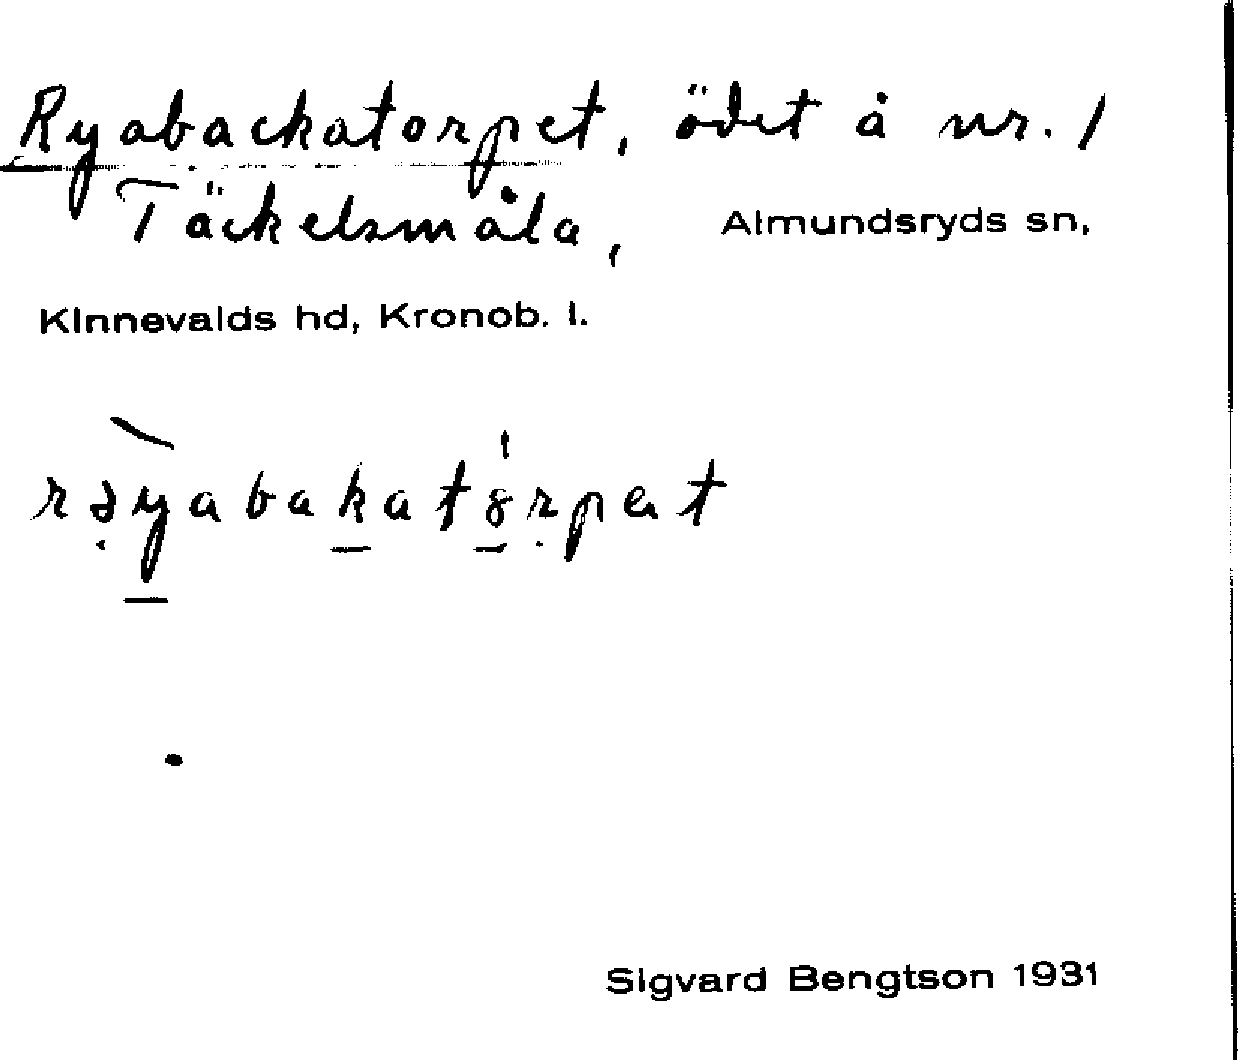 Ryabackatorpet, ödet å nr. 1
Täckelsmåla, Almundsryds sn,
Kinnevalds hd, Kronob. l.
rəyabakatȯrpət
Sigvard Bengtson 1931